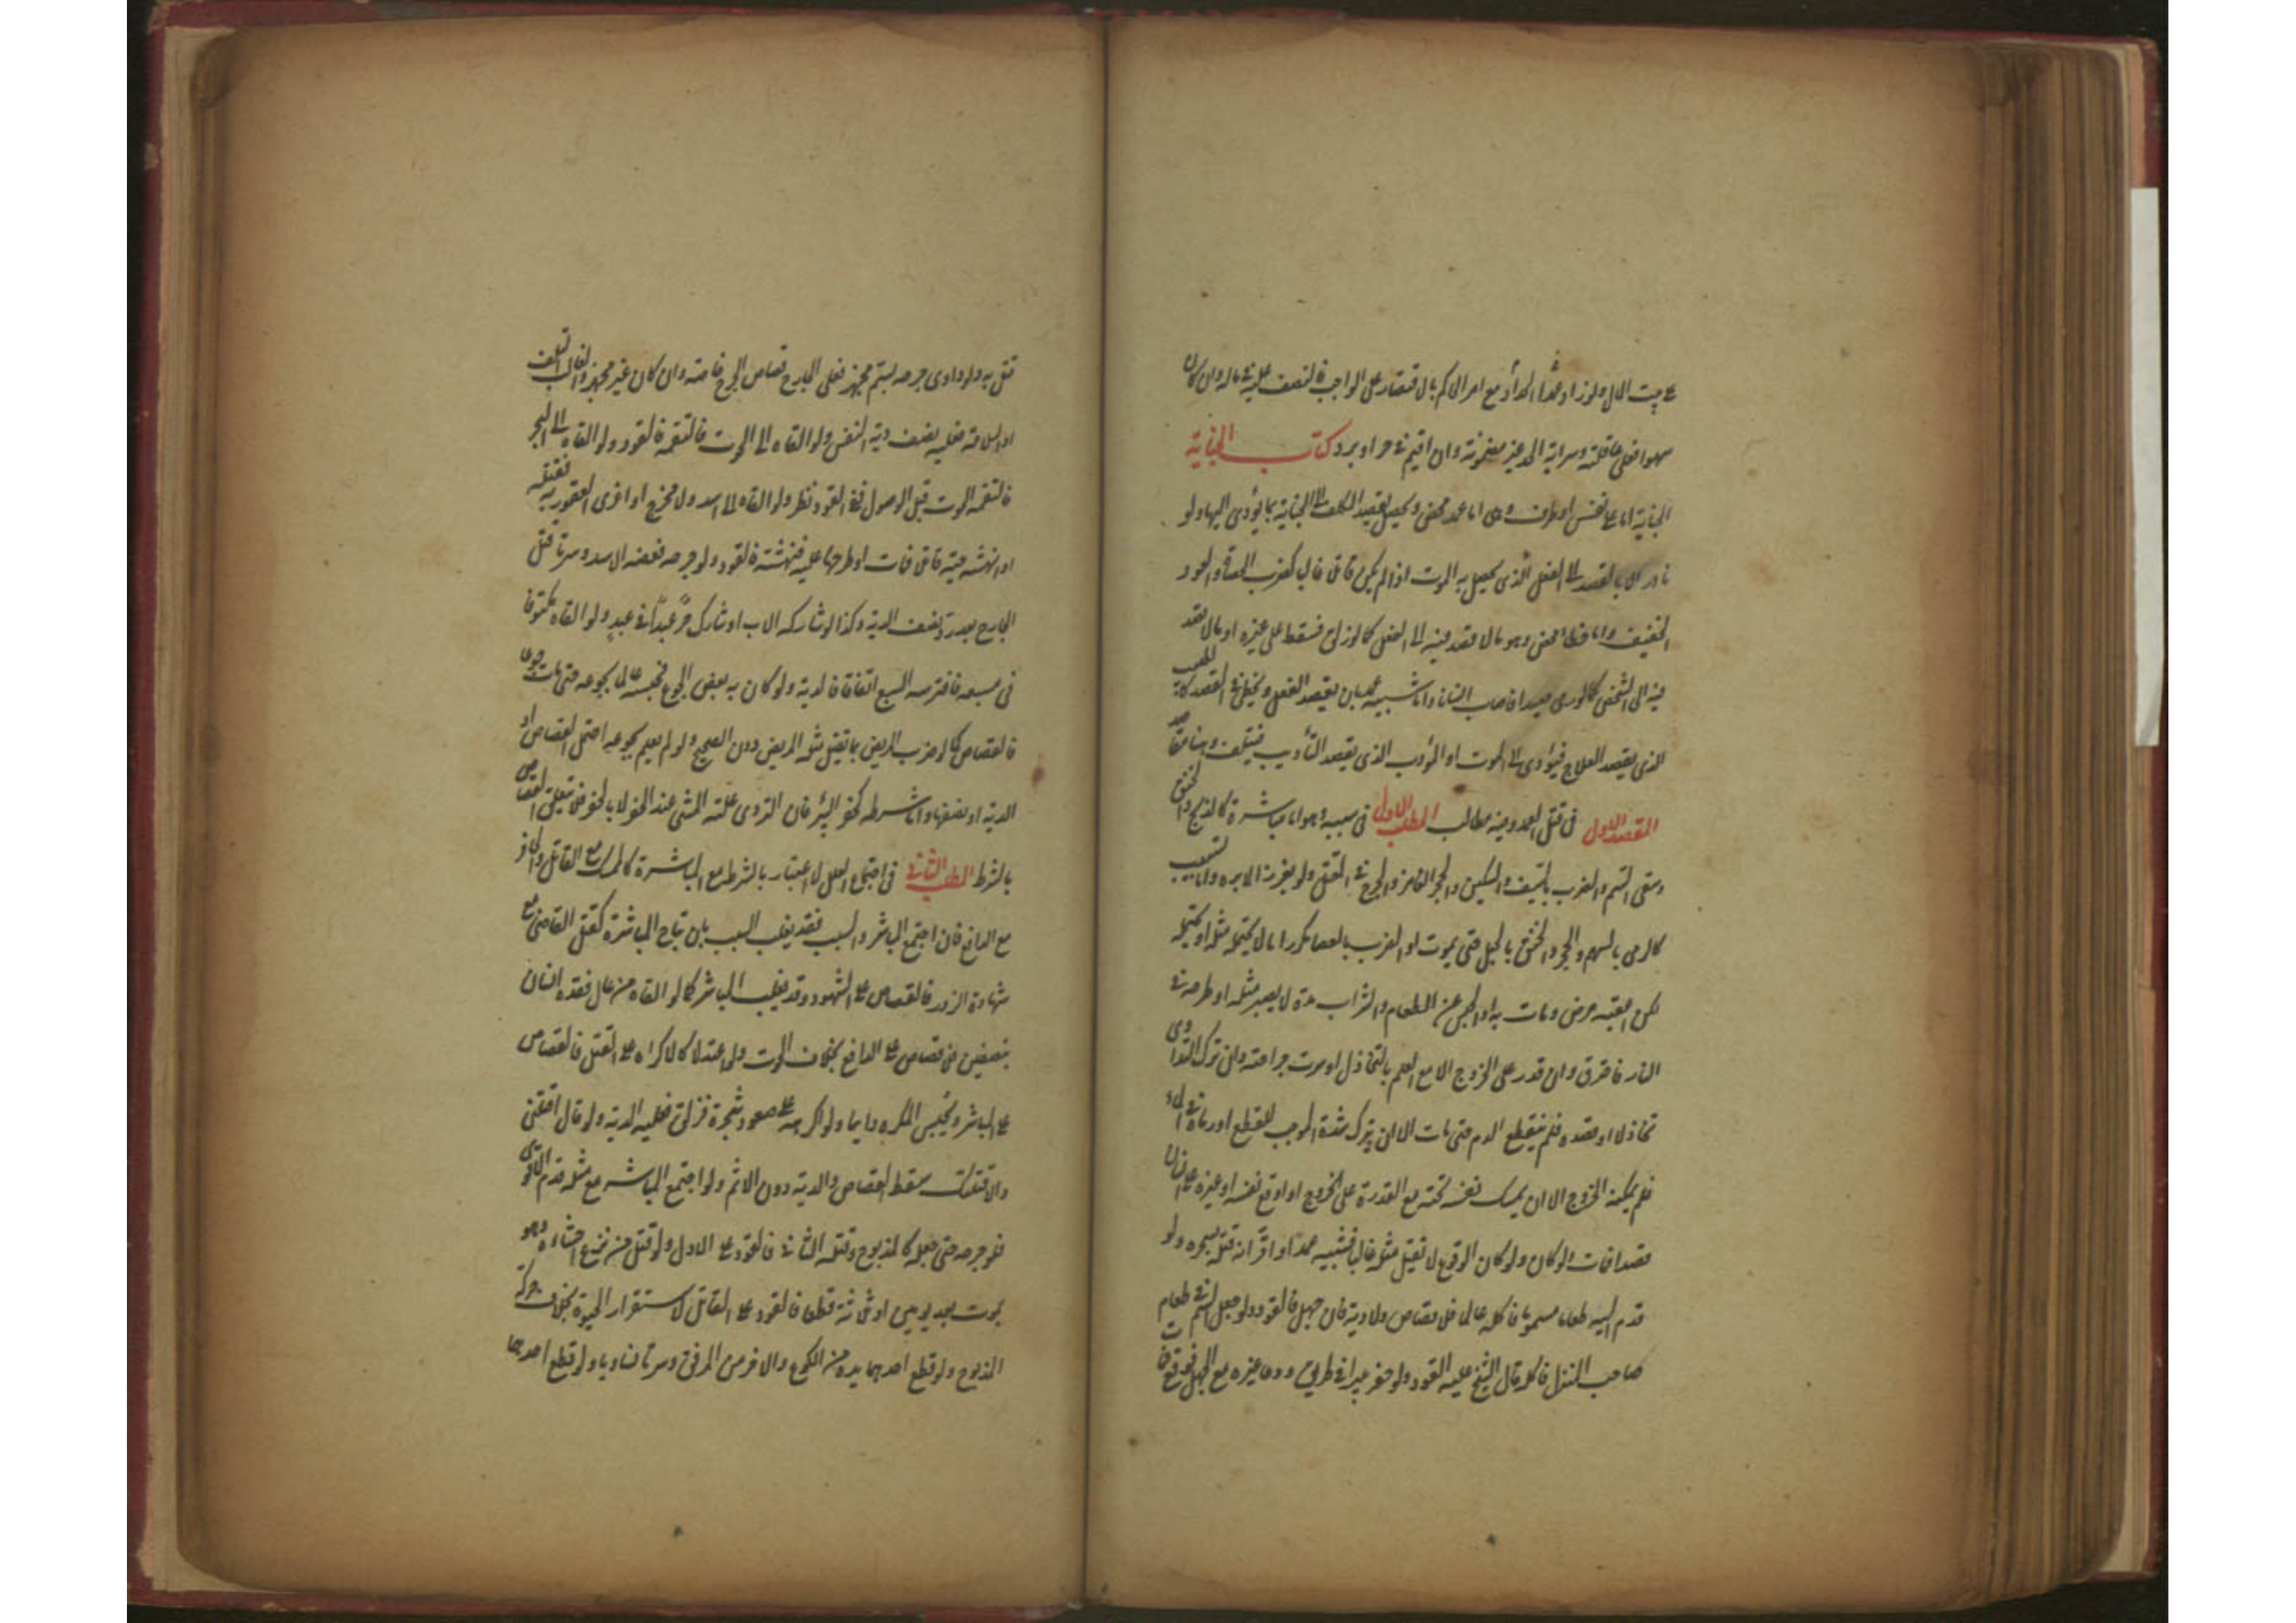 على بيت المال ولو زاد عمدا الحداد مع امر الحاكم بالاقتصار على الواجب فالنصف عليه في ماله وان كان
سهوا فعلى عاقلته وسراية الحد غير مضمونة وان اقيم في حر او برد كتاب الجناية
الجناية اما على نفس او طرف وهى اما عمد محض ويحصل بقصد المكلف الى الجناية بما يؤدى اليها ولو
نادرا او بالقصد الى الفعل الذى يحصل به الموت اذا لم يكن قاتلا غالبا كضرب الحصاة والعود
الخفيف واما خطأ محض وهو مالا قصد فيه الى الفعل كما لو زلق فسقط على غيره او مالا قصد
فيه الى الشخص كما لو رمى صيدا فاصاب انسانا واما شبيه عمد بان يقصد الفعل ويخطى فى القصد كالطبيب
الذى يقصد العلاج فيؤدى الى الموت او المؤدب الذى يقصد التأديب فيتلف وهنا مقاصد
المقصد الاول فى قتل العمد وفيه مطالب المطلب الاول فى سببه وهو اما مباشرة كالذبح والخنق
وسقى السم والضرب بالسيف والسكين والحجر الغامز والجرح فى المقتل ولو بغرز الابرة واما تسبيب
كالرمى بالسهم والحجر والخنق بالحبل حتى يموت او الضرب بالعصا مكررا ما لا يحتمله مثله او يحتمله
لكن اعقبه مرض ومات به او الحبس عن الطعام والشراب مدة لا يصبر مثله او طرحه فى
النار فاحترق وان قدر على الخروج الا مع العلم بالتخاذل او سرت جراحته وان ترك التداوى
تخاذلا او فصده فلم ينقطع الدم حتى مات الا ان يترك شده الموجب للقطع او رماه فى الماء
فلم يمكنه الخروج الا ان يمسك نفسه تحته مع القدرة على الخروج او اوقع نفسه او غيره على انسان
قصدا فمات ولو كان الوقوع لا يقتل مثله غالبا فشبيه عمد او اقر انه قتله بسحره ولو
قدم اليه طعاما مسموما فاكله عالما فلا قصاص ولا دية فان جهل فالقود ولو جعل السم فى طعام
صاحب المنزل فاكله قال الشيخ عليه القود ولو حفر بئرا فى طريق ودعا غيره مع الجهل فوقع فمات
قتل به ولو داوى جرحه بسم مجهز فعلى الجارح قصاص الجرح خاصة وان كان غير مجهز والغالب التلف
او السلامة فعليه نصف دية النفس ولو القاه الى الحوت فالتقمه فالقود ولو القاه الى البحر
فالتقمه الحوت قبل الوصول ففى القود نظر ولو القاه الى اسد ولا مخرج او اغرى العقور به فقتله
او انهشه حية قاتلا فمات او طرحها عليه فنهشته فالقود ولو جرحه فعضه الاسد وسرتا قتل
الجارح بعد رد نصف الدية وكذا لو شاركه الاب او شارك حر عبدا فى عبد ولو القاه مكتوفا
فى مسبعة فافترسه السبع اتفاقا فالدية ولو كان به بعض الجوع فحبسه عالما بجوعه حتى مات جوعا
فالقصاص كما لو ضرب المريض بما يقتل مثله المريض دون الصحيح ولو لم يعلم بجوعه احتمل القصاص او
الدية او نصفها واما شرط كحفر البئر فان التردى علته المشى عند الحفر لا بالحفر فلا يتعلق القصاص
بالشرط المطلب الثانى فى اجتماع العلل لا اعتبار بالشرط مع المباشرة كالممسك مع القاتل والحافر
مع الدافع فان اجتمع المباشر والسبب فقد يغلب السبب بان تباح المباشرة كقتل القاضى مع
شهادة الزور فالقصاص على الشهود وقد يغلب المباشر كما لو القاه من عال فقده انسان
بنصفين فلا قصاص على الدافع بخلاف الحوت ولو اعتدلا كالاكراه على القتل فالقصاص
على المباشر ويحبس المكره دايما ولو اكرهه على صعود شجرة فزلق فعليه الدية ولو قال اقتلنى
والا قتلتك سقط القصاص والدية دون الاثم ولو اجتمع المباشر مع مثله قدم الاقوى
فلو جرحه حتى جعله كالمذبوح وقتله الثانى فالقود على الاول ولو قتل من نزع احشاؤه وهو
يموت بعد يومين او ثلاثة قطعا فالقود على القاتل لاستقرار الحيوة بخلاف حركة
المذبوح ولو قطع احدهما يده من الكوع والاخر من المرفق وسرتا تساويا ولو قطع احدهما